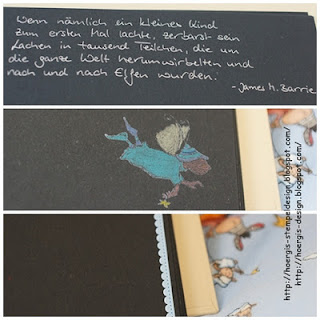 Wenn nämlich ein kleines Kind
zum ersten Mal lachte, zerbarst sein
Lachen in tausend Teilchen, die um
die ganze Welt herumwirbelten und
nach und nach Elfen wurden.
- James M. Barrie
http://hoergis-stempeldesign.blogspot.com/
http://hoergis-design.blogspot.com/